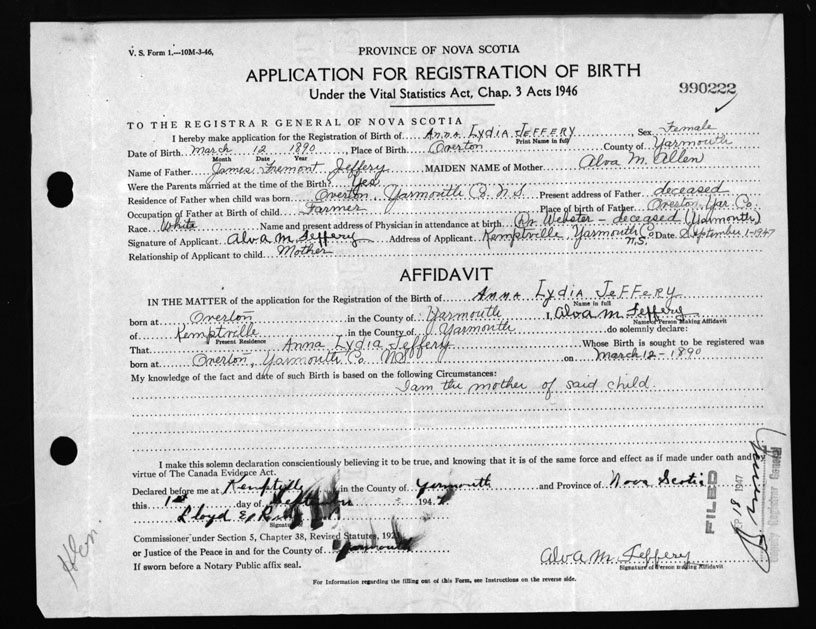 V. S. Form 1.—10M-3-46,
PROVINCE OF NOVA SCOTIA
APPLICATION FOR REGISTRATION OF BIRTH
Under the Vital Statistics Act, Chap. 3 Acts 1946
990222
TO THE REGISTRAR GENERAL OF NOVA SCOTIA
I hereby make application for the Registration of Birth of Anna Lydia JEFFERY, Sex Female
Print Name in full
Date of Birth March 12 1890 Place of Birth Overton County of Yarmouth
Month Date Year
Name of Father James Fremont Jeffery MAIDEN NAME of Mother Alva M. Allen
Were the Parents married at the time of the Birth? Yes
Residence of Father when child was born Overton, Yarmouth Co. N.S Present address of Father deceased
Occupation of Father at Birth of child Farmer Place of birth of Father Overton Yar Co.
Race White Name and present address of Physician in attendance at birth Dr. Webster - deceased (Yarmouth)
Signature of Applicant Alva M. Jeffery Address of Applicant Kemptville, Yarmouth Co N.S. Date September 1-1947
Relationship of Applicant to child Mother
AFFIDAVIT
IN THE MATTER of the application for the Registration of the Birth of Anna Lydia Jeffery
Name in full
born at Overton in the County of Yarmouth I, Alva M. Jeffery
Name of Person Making Affidavit
of Kemptville in the County of Yarmouth do solemnly declare:
Present Residence
That Anna Lydia Jeffery Whose Birth is sought to be registered was
born at Overton, Yarmouth Co. N.S on March 12-1890
My knowledge of the fact and date of such Birth is based on the following Circumstances:
I am the mother of said child
I make this solemn declaration conscientiously believing it to be true, and knowing that it is of the same force and effect as if made under oath and by
virtue of The Canada Evidence Act.
Declared before me at Kemptville in the County of Yarmouth and Province of Nova Scotia
this 1st day of September 1947
Lloyd E.
Signature
Commissioner under Section 5, Chapter 38, Revised Statutes, 192
or Justice of the Peace in and for the County of Yarmouth
If sworn before a Notary Public affix seal.
Alva M. Jeffery
Signature of Person Making Affidavit
For Information regarding the filling out of this Form, see Instructions on the reverse side.
FILED
SEP 18 1947
Deputy Registrar General